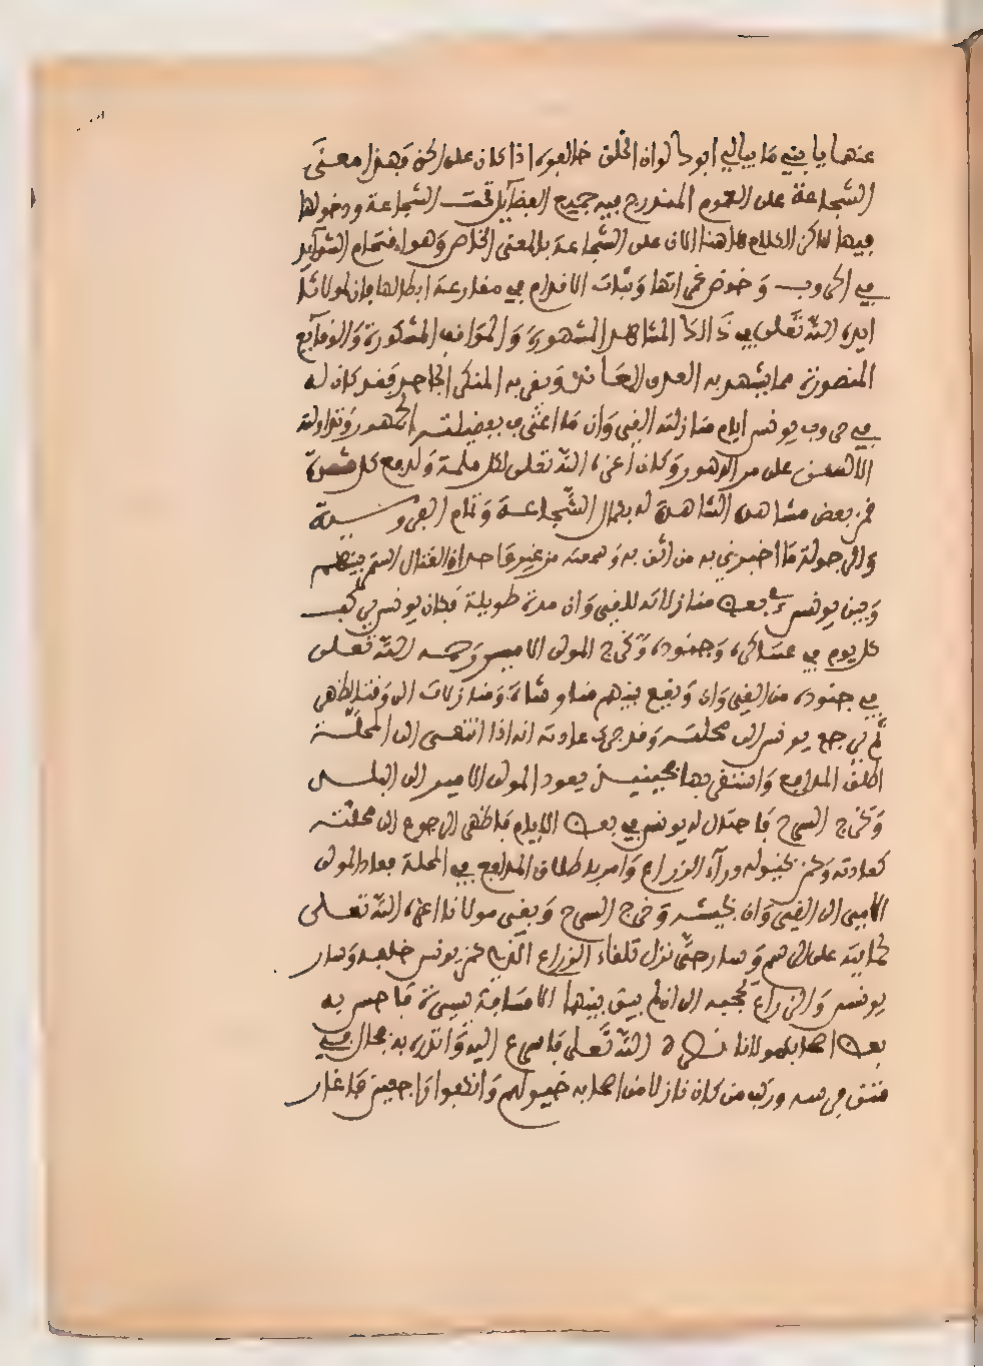 عنها يا بني ما يبالي ابوك لو ان الخلق خالفوه اذا كان على الحق وهذا معنى
الشجاعة على العموم المندرج فيه جميع الفضايل تحت الشجاعة ودخولها
فيها لاكن الكلام هاهنا الان على الشجاعة بالمعنى الخاص وهو اقتحام الشدايد
في الحروب وخوض غمراتها وثبات الاقدام في مقارعة ابطالها فان لمولانا
ايده الله تعلى في ذالك المشاهد المشهورة والمواقف المشكورة والوقايع
المنصورة مما يشهد به العدو المعاند ويقر به المنكر الجاحد فقد كان له
في حروب يونس ايام منازلته القيروان ما اعترف بفضيلته الجمهور وتداولته
الالسن على مر الدهور وكان اعزه الله تعلى لكل ملمة ولدفع كل
فمن بعض مشاهده الشاهدة له بكمال الشجاعة وتمام الفروسية
وا جولة ما اخبرني به من اثق به وسمعته من غير واحد ان القتال استمر بينهم
وبين يونس في بعض منازلاته للقيروان مدة طويلة فكان يونس يركب
كل يوم في عساكره وجنوده ويخرج المولى الامير رحمه الله تعلى
في جنوده من القيروان ويقع بينهم مناوشات ومنازلات الى وقت الظهر
ثم يرجع يونس الى محلته وقد جرى عادته انه اذا انتهى الى المحلة
اطلق المدافع واستقر بها فحينئذ يعود المولى الامير الى البلد
ويخرج السرح فاحتال له يونس في بعض الايام فاظهر الرجوع الى محلته
كعادته وكمن بخيوله ورآء الزراع وامر باطلاق المدافع في المحلة فعاد المولى
الامير الى القيروان بجيشه وخرج السرح وبقي مولانا اعزه الله تعلى
على اثرهم وسار حتى نزل تلقاء الزراع الذي كمن يونس خلفه وسار
يونس والزراع يحجبه الى ان لم يبق بينهما الا مسافة يسيرة فاحس به
بعض اصحاب مولانا نصره الله تعلى فاسرع اليه وانذره به فجال في
متن فرسه وركب من كان نازلا من اصحابه خيولهم واندفعوا راجعين فاغار